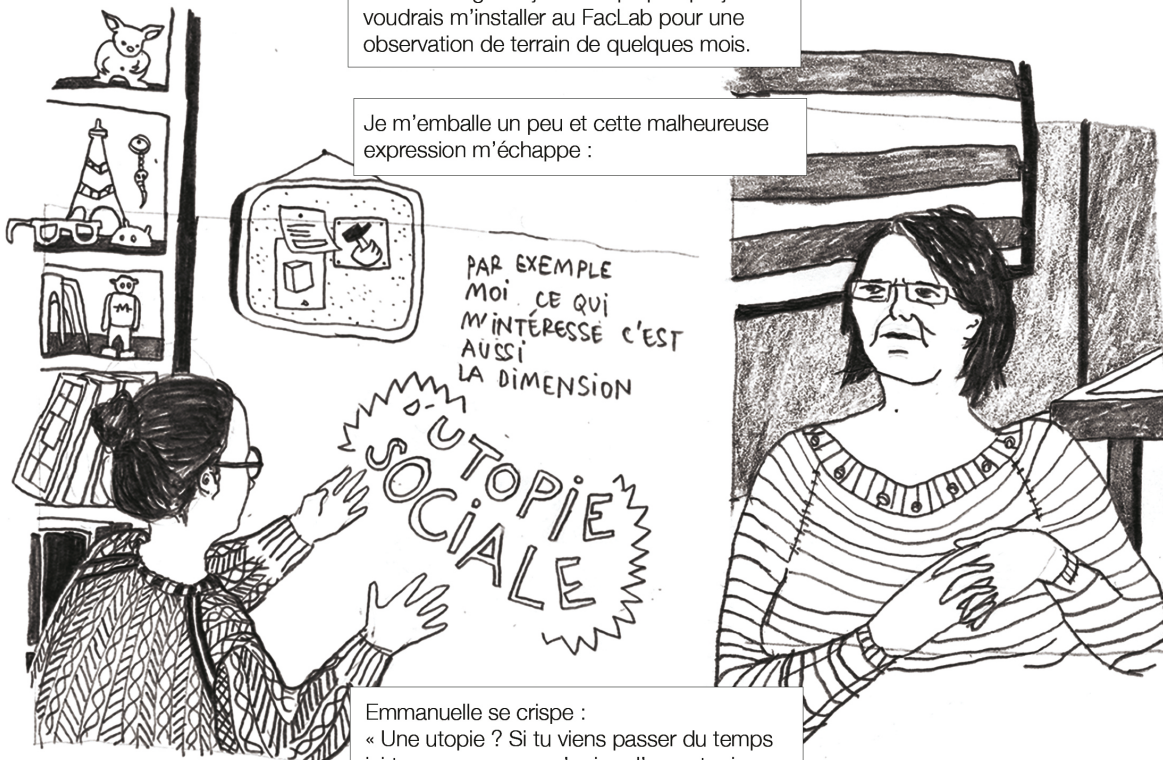 voudrais m'installer au FacLab pour une
observation de terrain de quelques mois.
Je m'emballe un peu et cette malheureuse
expression m'échappe :
PAR EXEMPLE
MOI CE QUI
M'INTÉRESSE C'EST
AUSSI
LA DIMENSION
D'UTOPIE
SOCIALE
Emmanuelle se crispe :
« Une utopie ? Si tu viens passer du temps